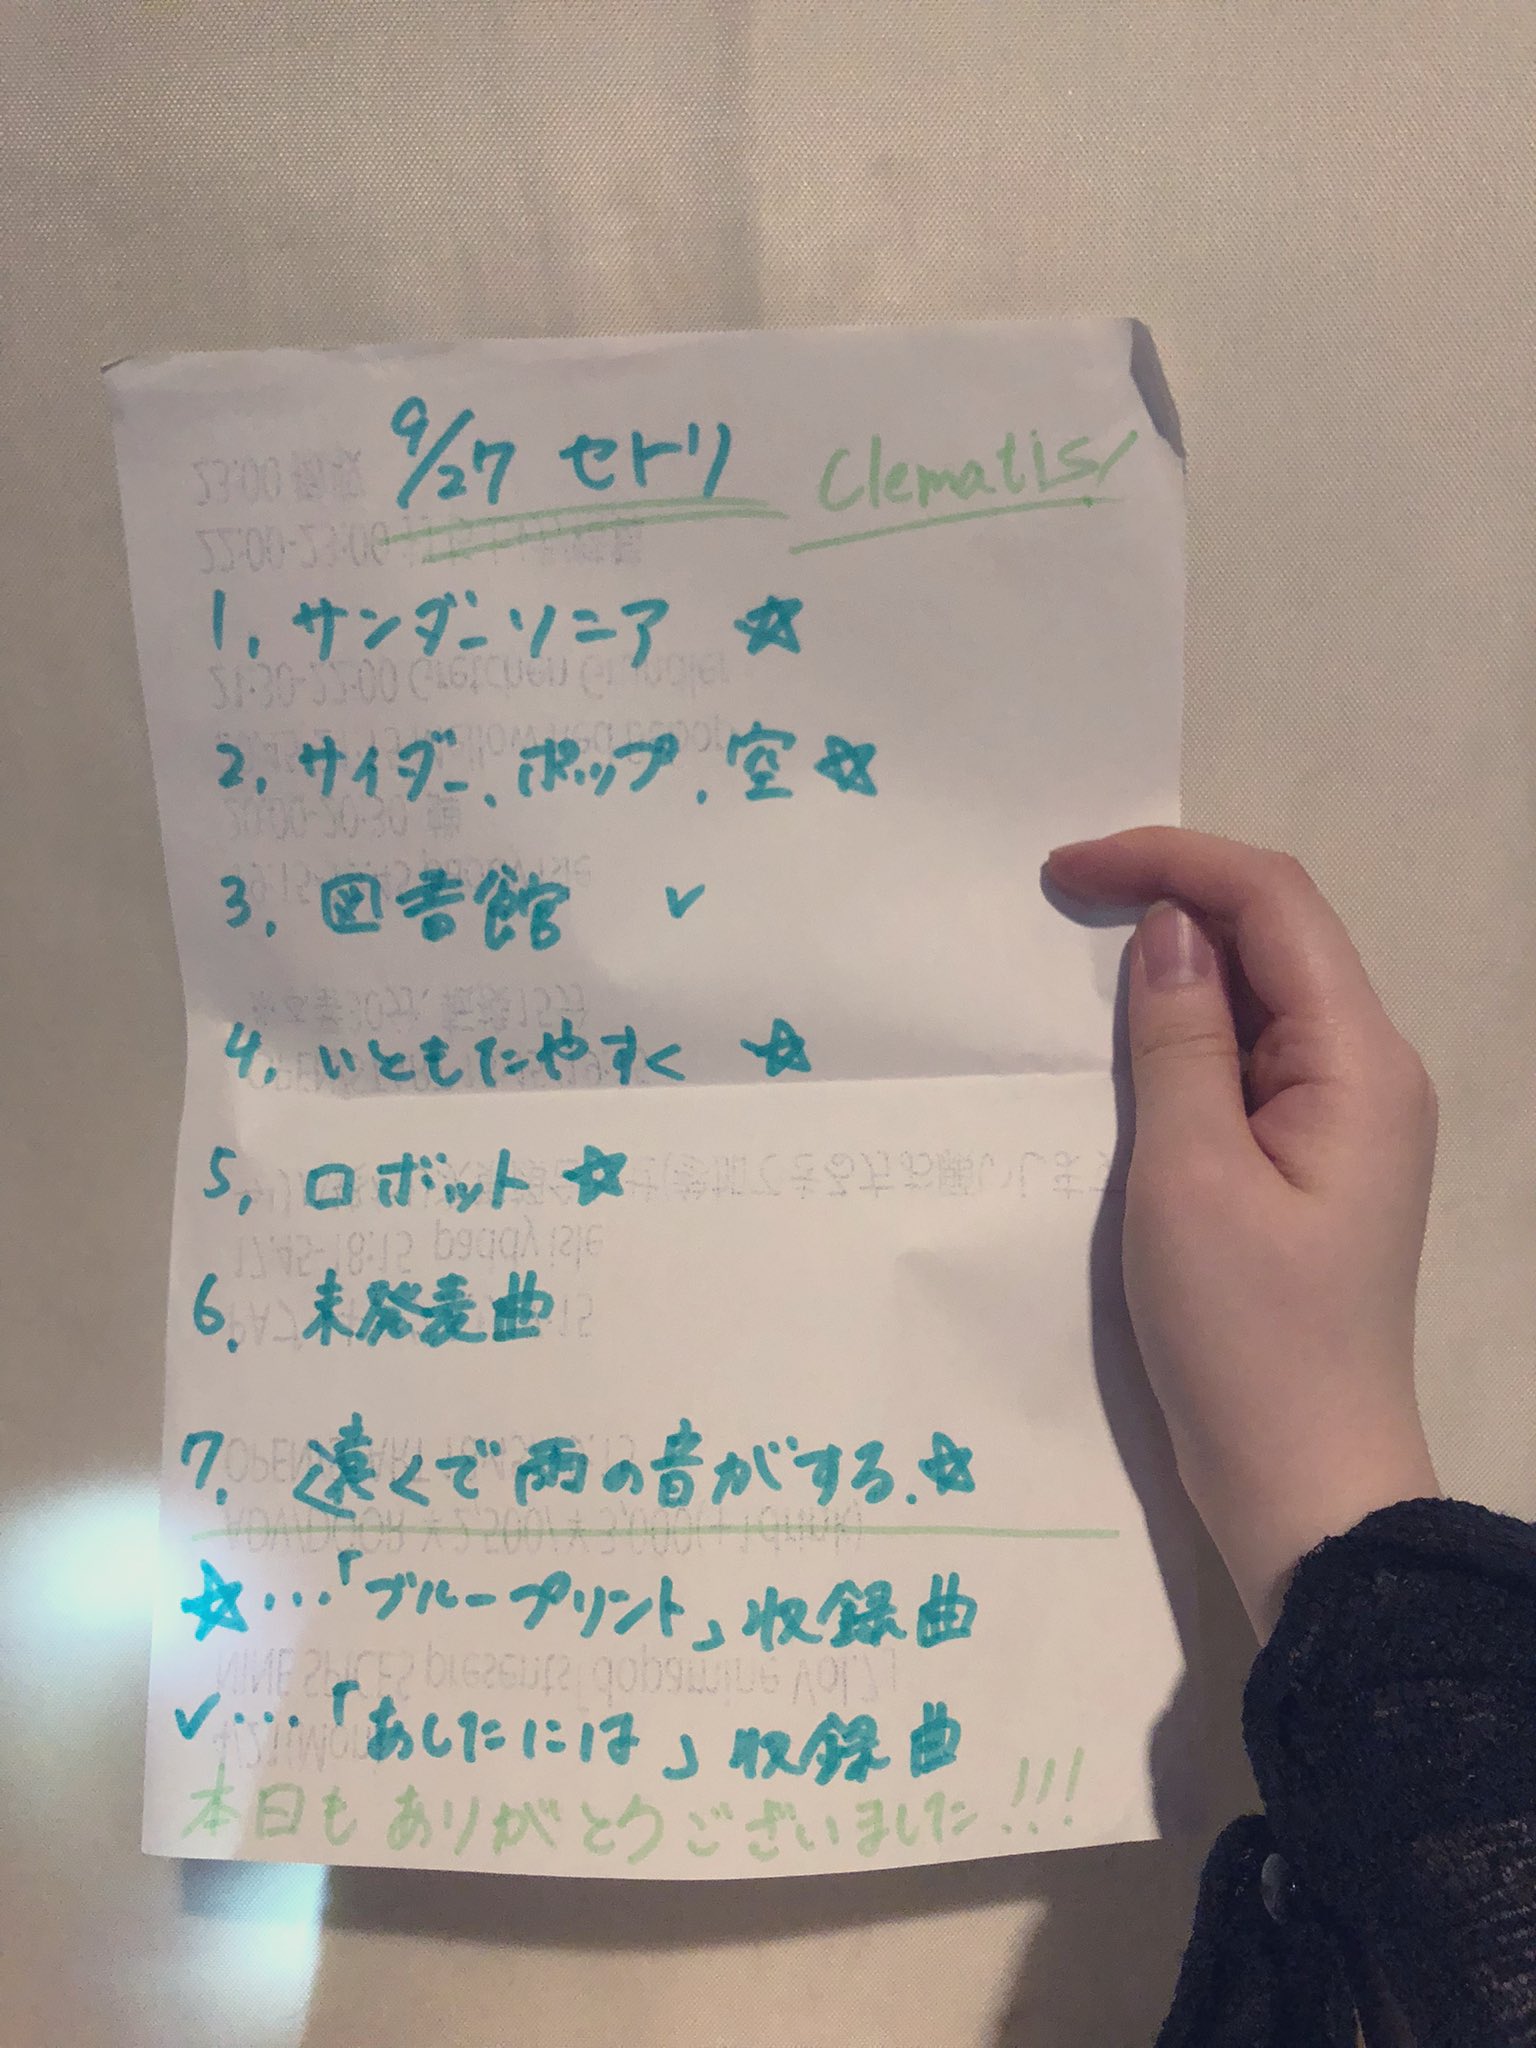 9/27 セトリ Clematis/
1. サンダーソニア ☆
2. サイダー、ポップ、空 ☆
3. 図書館 ✓
4. いともたやすく ☆
5. ロボット ☆
6. 未発表曲
7. 遠くで雨の音がする. ☆
☆…「ブループリント」収録曲
✓…「あしたには」収録曲
本日もありがとうございました!!!